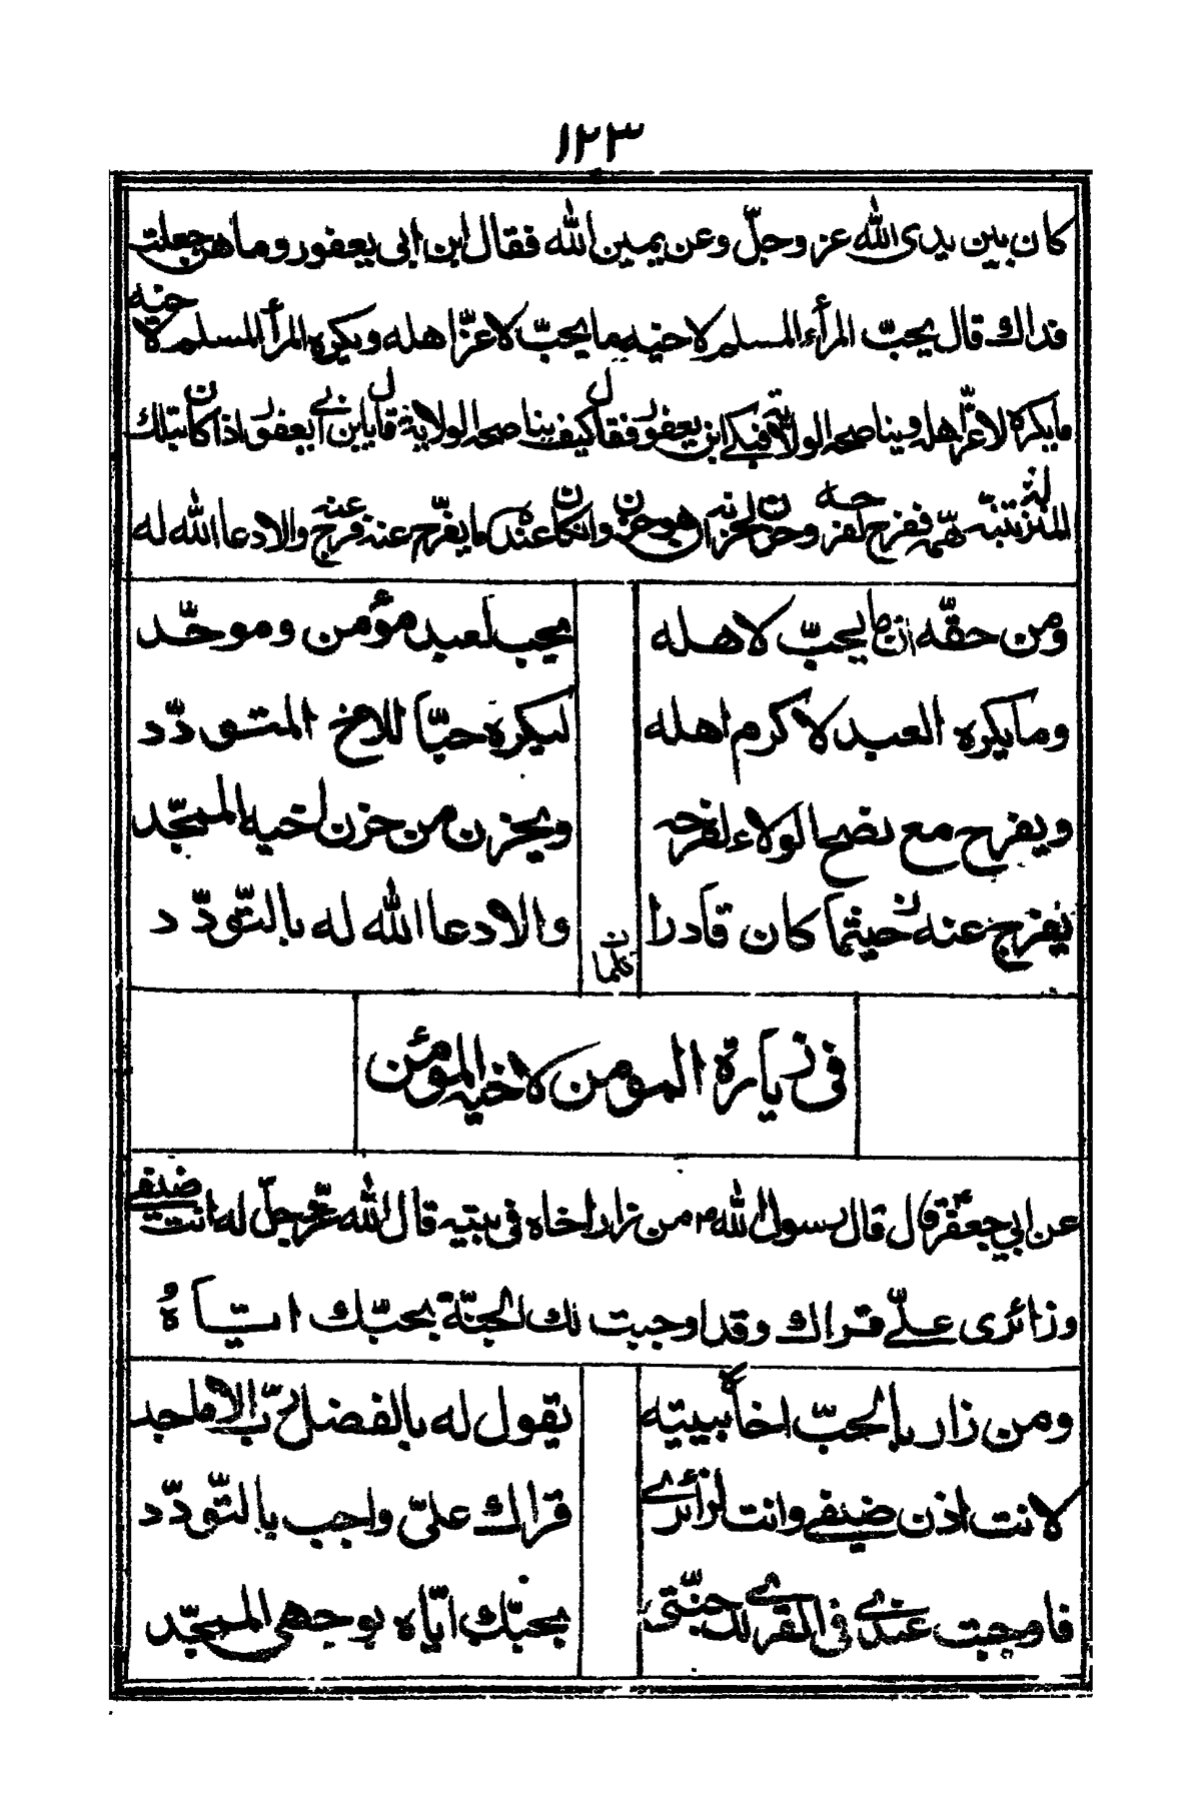 ١٢٣
كان بين يدى الله عز وجلّ وعن يمين الله فقال ابن ابى يعفور وما هن جعلت
فداك قال يحبّ المرأ المسلم لاخيه ما يحبّ لاعزّ اهله ويكره المرأ المسلم لاخيه
ما يكره لاعزّ اهله ويناصحه الولاية فبكى ابن يعفور فقال كيف يناصحه الولاية قال يابن ابى يعفور اذا كان بتلك
المنزلة بثّه همّه ففرح لفرحه وحزن لحزنه ان هو حزن وان كان عنده ما يفرّج عنه فرج عنه والا دعا الله له
ومن حقّه ان ما يحبّ لاهله
يحب لعبد مؤمن وموحّد
وما يكره العبد لاكرم اهله
ليكره حبّا للاخ المتودّد
ويفرح مع نصح الولاء لفرحه
ويحزن من حزن لخيه الممجّد
يفرج عنه حيثما كان قادرا
والا دعا الله له بالتّودّد
فى زيارة المومن لاخيه المؤمن
عن ابي جعفر ع قال قال رسول الله ص من زار اخاه فى بيته قال الله عزّ وجلّ له انت ضيفى
وزائرى علىّ قراك وقد اوجبت لك الجنّة بحبّك ايّاه
ومن زار بالحبّ اخاه ببيته
يقول له بالفضل ربّ الاماجد
لانت اذن ضيفى وانت لزائرى
قراك علىّ واجب بالتّودّد
فاوجبت عندى فى القرى لك جنّتى
بحبّك ايّاه بوجهى الممجّد